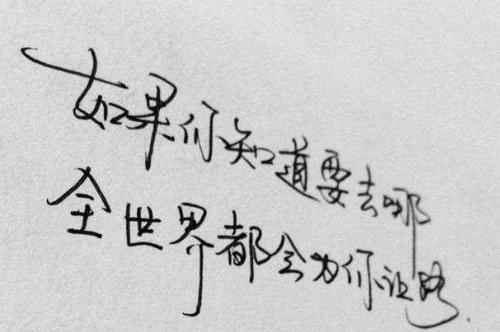 如果你知道要去哪
全世界都会为你让路